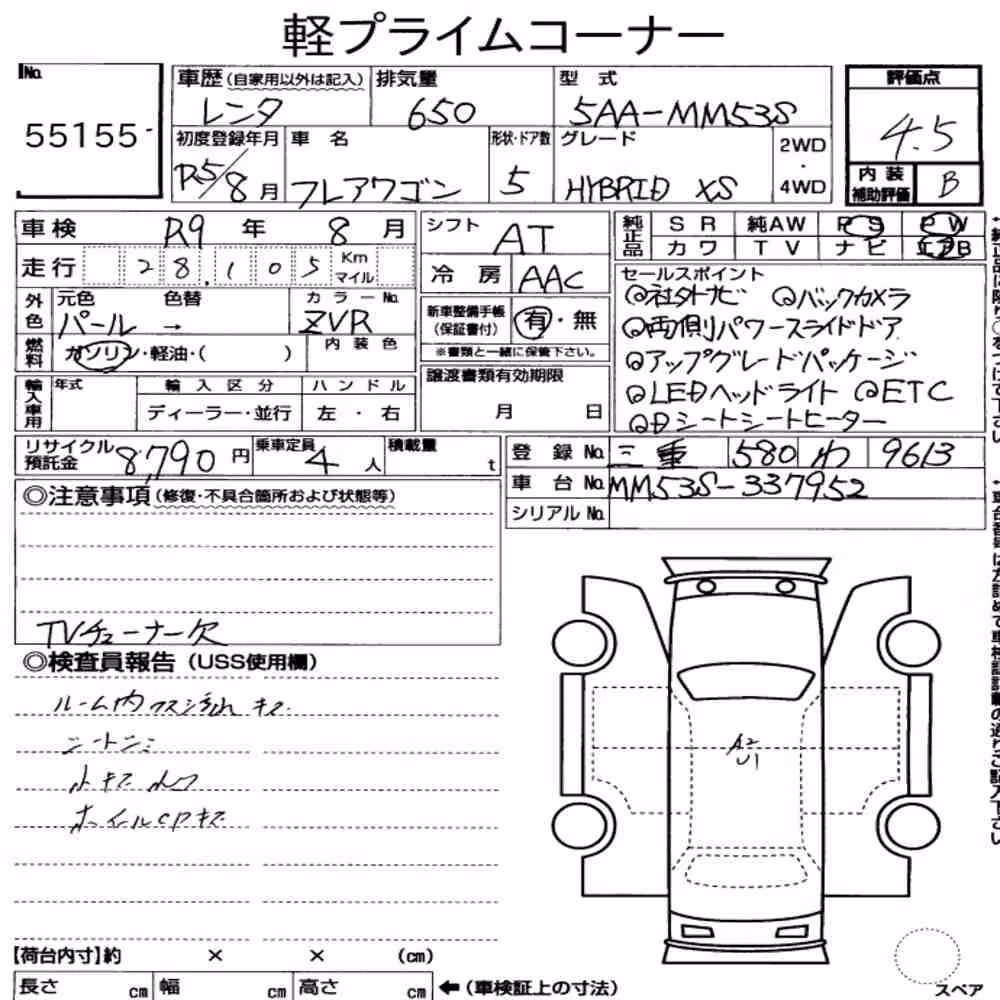 軽プライムコーナー
No. 55155
車歴(自家用以外は記入) レンタ
排気量 650
型式 5AA-MM53S
評価点 4.5
初度登録年月 R5/8月
車名 フレアワゴン
形状・ドア数 5
グレード HYBRID XS
2WD・4WD
内装補助評価 B
車検 R9年 8月
シフト AT
純正品 SR 純AW PS PW
カワ TV ナビ エアB
走行 28,105 Km マイル
冷房 AAC
外色 元色 パール → 色替
カラーNo. ZVR
燃料 ガソリン・軽油・( )
内装色
新車整備手帳(保証書付) 有・無
※書類と一緒に保管下さい。
セールスポイント
◎社外ナビ ◎バックカメラ
◎両側パワースライドドア
◎アップグレードパッケージ
◎LEDヘッドライト ◎ETC
◎Dシートシートヒーター
輸入車用 年式 輸入区分 ハンドル
ディーラー・並行 左・右
譲渡書類有効期限
月 日
リサイクル預託金 8,790円
乗車定員 4人
積載量 t
登録No. 三重 580 わ 9613
車台No. MM53S-337952
シリアルNo.
◎注意事項(修復・不具合箇所および状態等)
TVチューナー欠
◎検査員報告(USS使用欄)
ルーム内 キズ
シートシミ
小キズ
ホイールCPキズ
A2
U1
【荷台内寸】約 × × (cm)
長さ cm 幅 cm 高さ cm
←(車検証上の寸法)
スペア